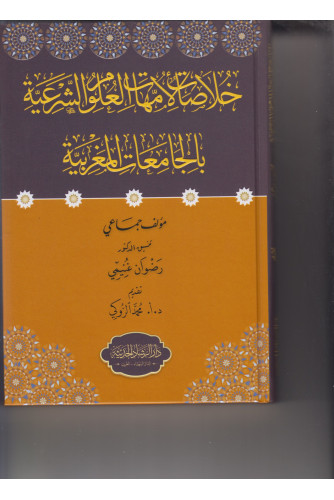 خلاصات لأمهات العلوم الشرعية
بالجامعات المغربية
مؤلف جماعي
تنسيق الدكتور
رضوان غنيمي
تقديم
د.ا. محمد الروكي
دار الرشاد الحديثة